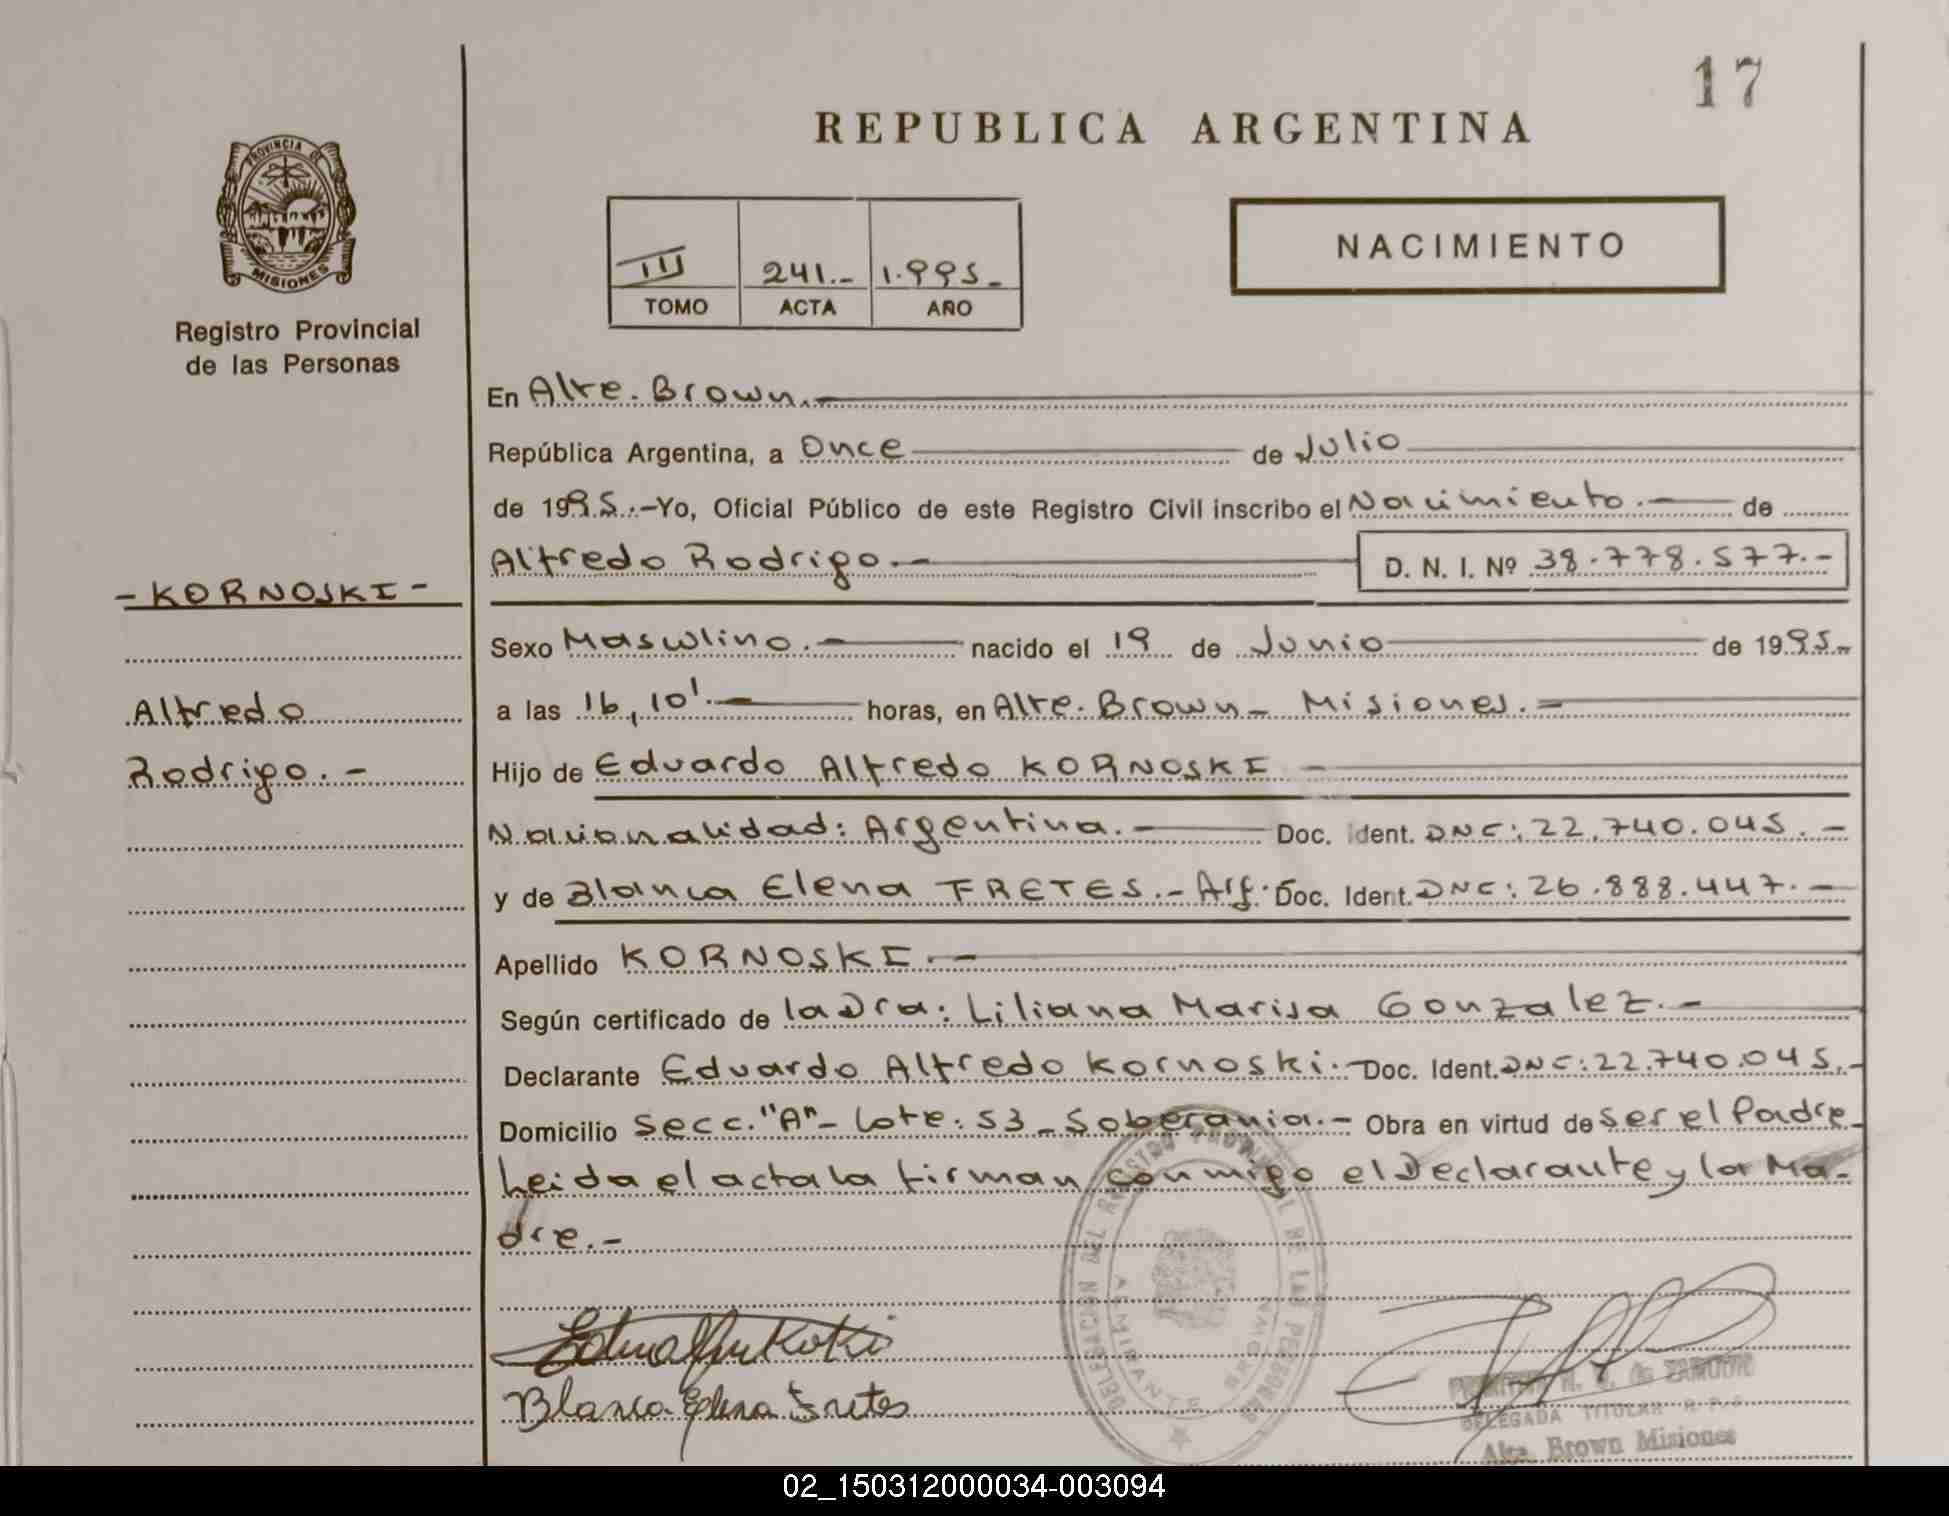 17
REPUBLICA ARGENTINA
PROVINCIA DE
MISIONES
Registro Provincial
de las Personas
III 241.- 1.995-
TOMO ACTA AÑO
NACIMIENTO
En Alte. Brown.-
República Argentina, a Once de Julio
de 1995.-Yo, Oficial Público de este Registro Civil inscribo el Nacimiento.- de
Alfredo Rodrigo.- D. N. I. Nº 38.778.577.-
-KORNOSKI-
Sexo Masculino.- nacido el 19 de Junio de 1995.-
Alfredo
a las 16,10'.- horas, en Alte. Brown- Misiones.-
Rodrigo.-
Hijo de Eduardo Alfredo KORNOSKI -
Nacionalidad: Argentina.- Doc. Ident. DNI: 22.740.045.-
y de Blanca Elena FRETES.- Arg. Doc. Ident. DNI: 26.888.447.-
Apellido KORNOSKI.-
Según certificado de la Dra: Liliana Marisa Gonzalez.-
Declarante Eduardo Alfredo Kornoski.- Doc. Ident. DNI: 22.740.045.-
Domicilio Secc. "A"- Lote: 53- Soberania.- Obra en virtud de ser el Padre-
Leida el acta la firman conmigo el Declarante y la Ma-
dre.-
DELEGACION DEL REGISTRO PROVINCIAL DE LAS PERSONAS
ALMIRANTE BROWN
Blanca Elena Fretes
DELEGADA TITULAR R.P.
Alte. Brown Misiones
02_150312000034-003094